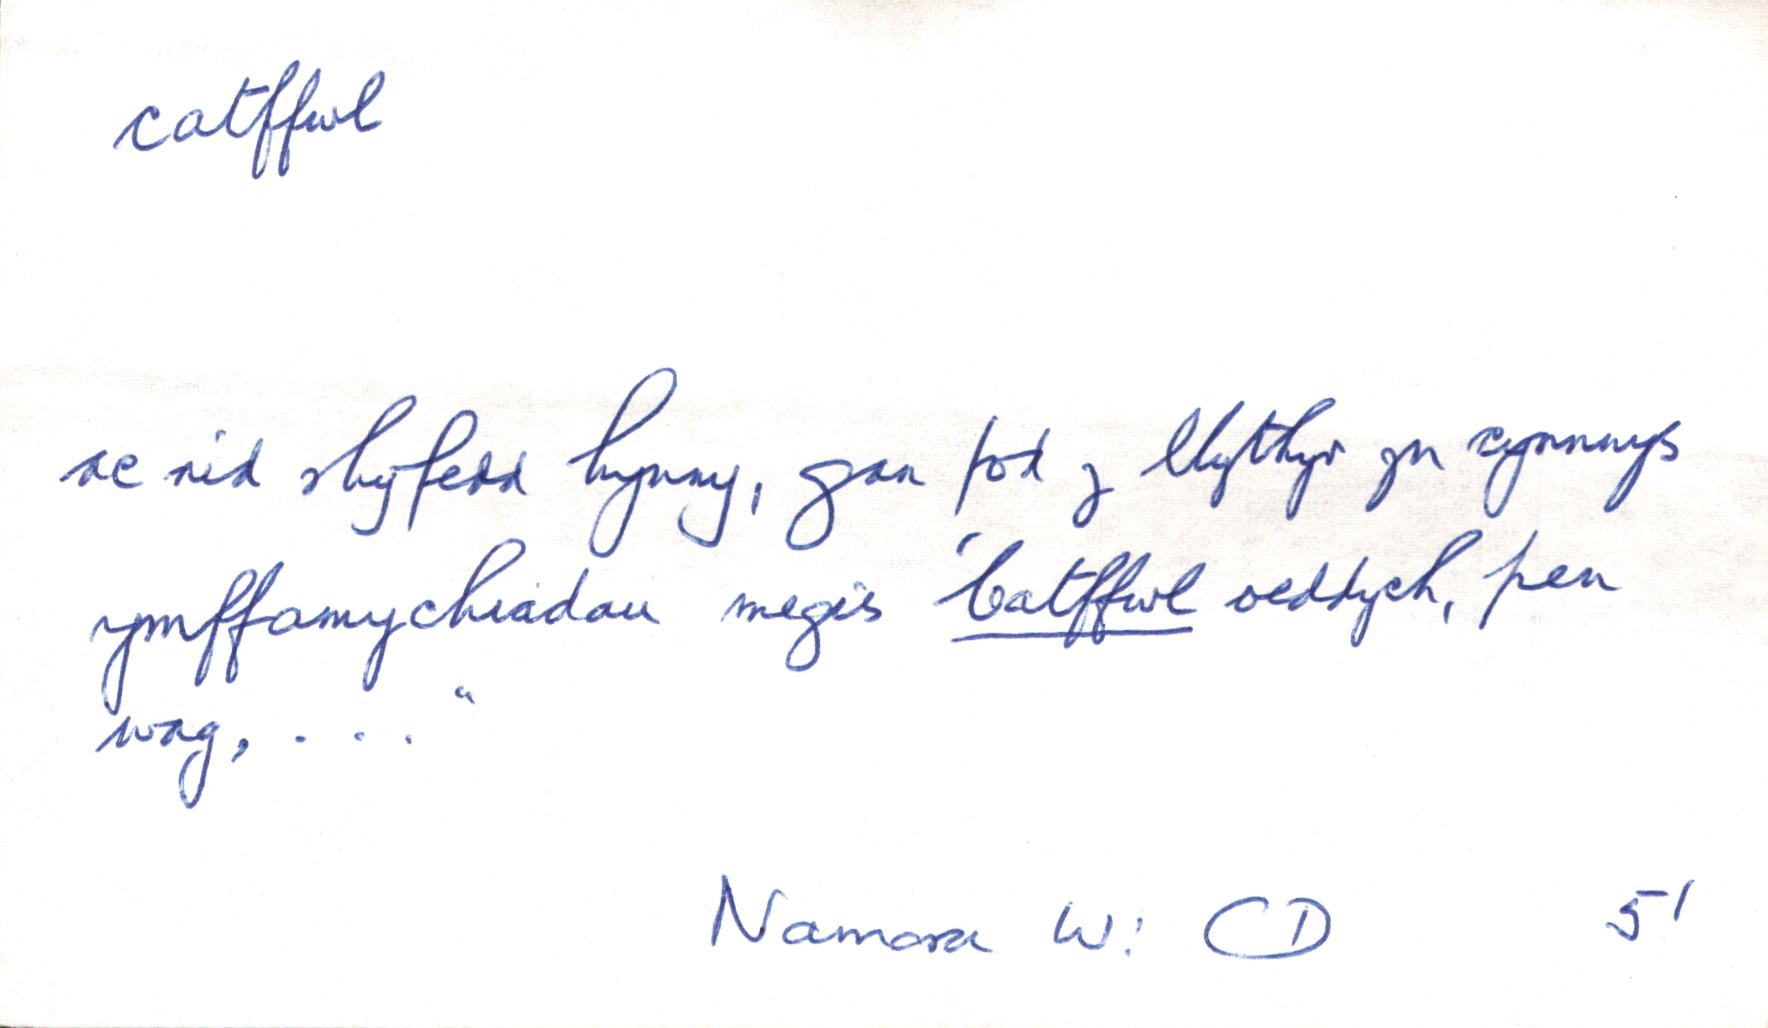 catffwl
ac nid rhyfedd hynny, gan fod y llythyr yn cynnwys
ymfflamychiadau megis "Catffwl oeddych, pen
wag, . . . "
Namora W: CD 51